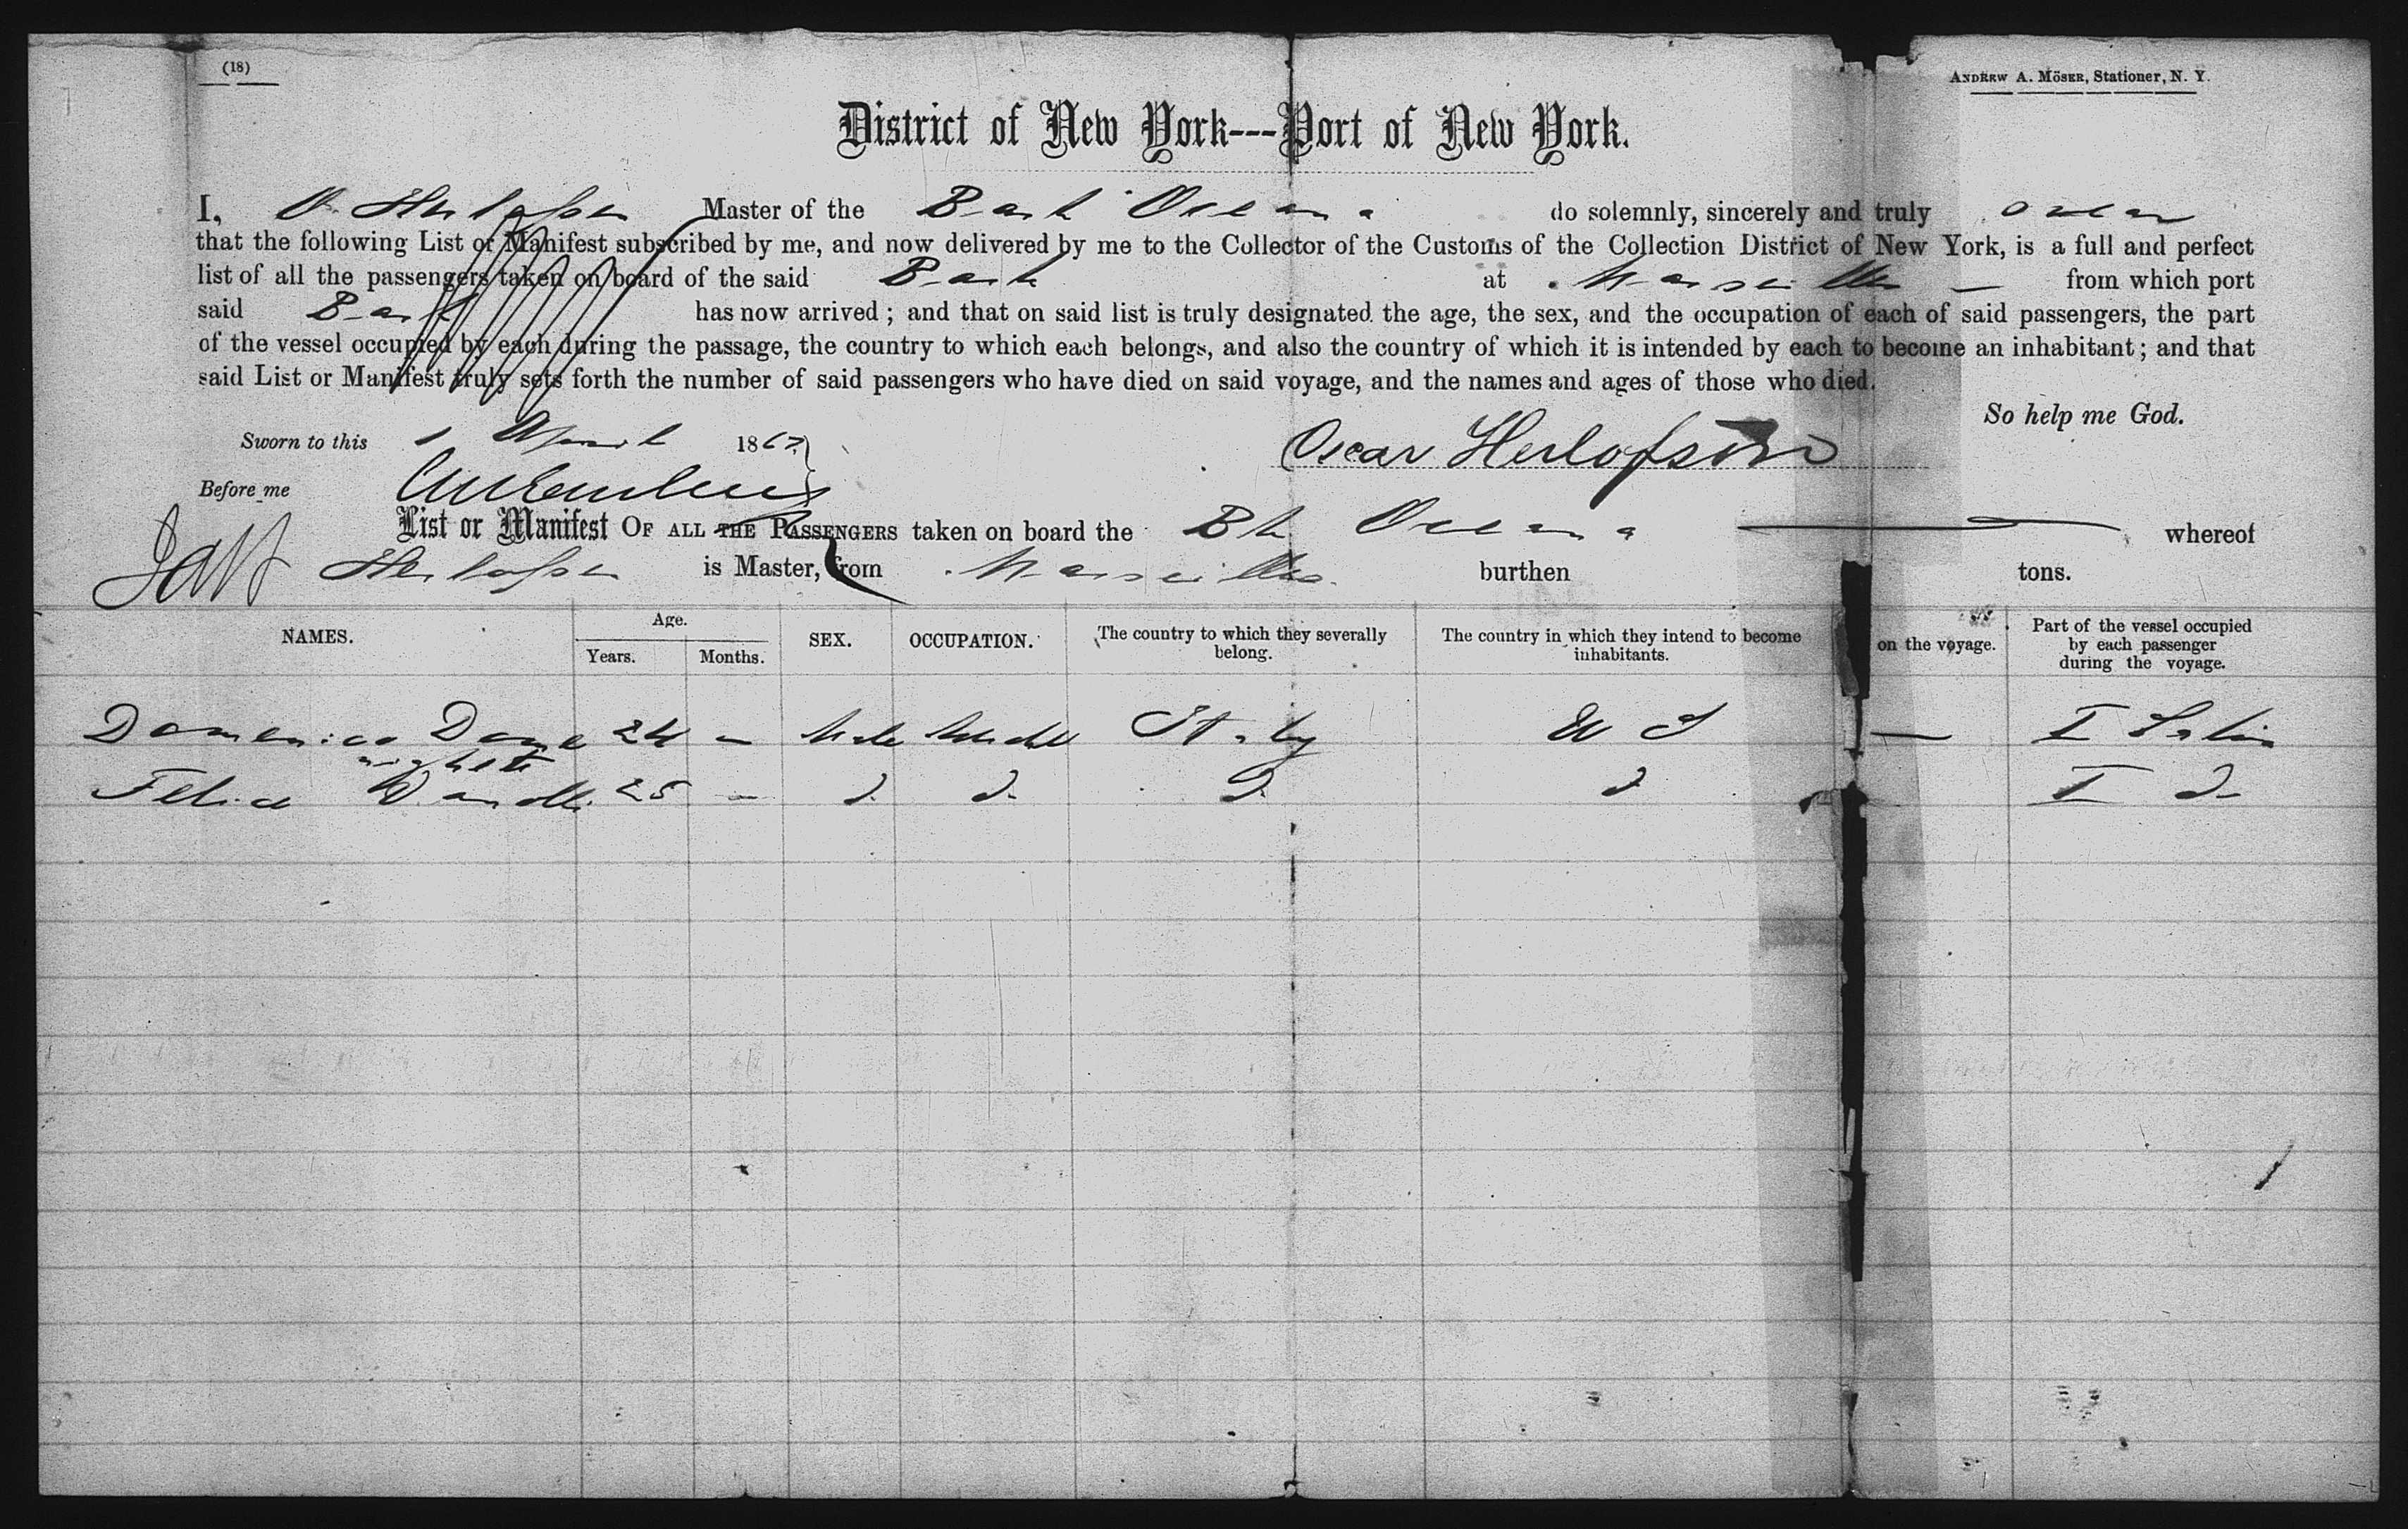 (18)
ANDREW A. MÖSER, Stationer, N. Y.
District of New York---Port of New York.
I, O. Herlofsen Master of the Bark Oceana do solemnly, sincerely and truly swear
that the following List or Manifest subscribed by me, and now delivered by me to the Collector of the Customs of the Collection District of New York, is a full and perfect
list of all the passengers taken on board of the said Bark at Marseilles from which port
said Bark has now arrived ; and that on said list is truly designated the age, the sex, and the occupation of each of said passengers, the part
of the vessel occupied by each during the passage, the country to which each belongs, and also the country of which it is intended by each to become an inhabitant ; and that
said List or Manifest truly sets forth the number of said passengers who have died on said voyage, and the names and ages of those who died.
So help me God.
Sworn to this 1 April 1867 Oscar Herlofson
Before me
List or Manifest OF ALL THE PASSENGERS taken on board the Bk Oceana whereof
Herlofsen is Master, from Marseilles burthen tons.
NAMES. Age. Years. Months. SEX. OCCUPATION. The country to which they severally belong. The country in which they intend to become inhabitants. on the voyage. Part of the vessel occupied by each passenger during the voyage.
Domenico 24 - Male Italy U S — I
Felice 25 - d. d. d. d I d